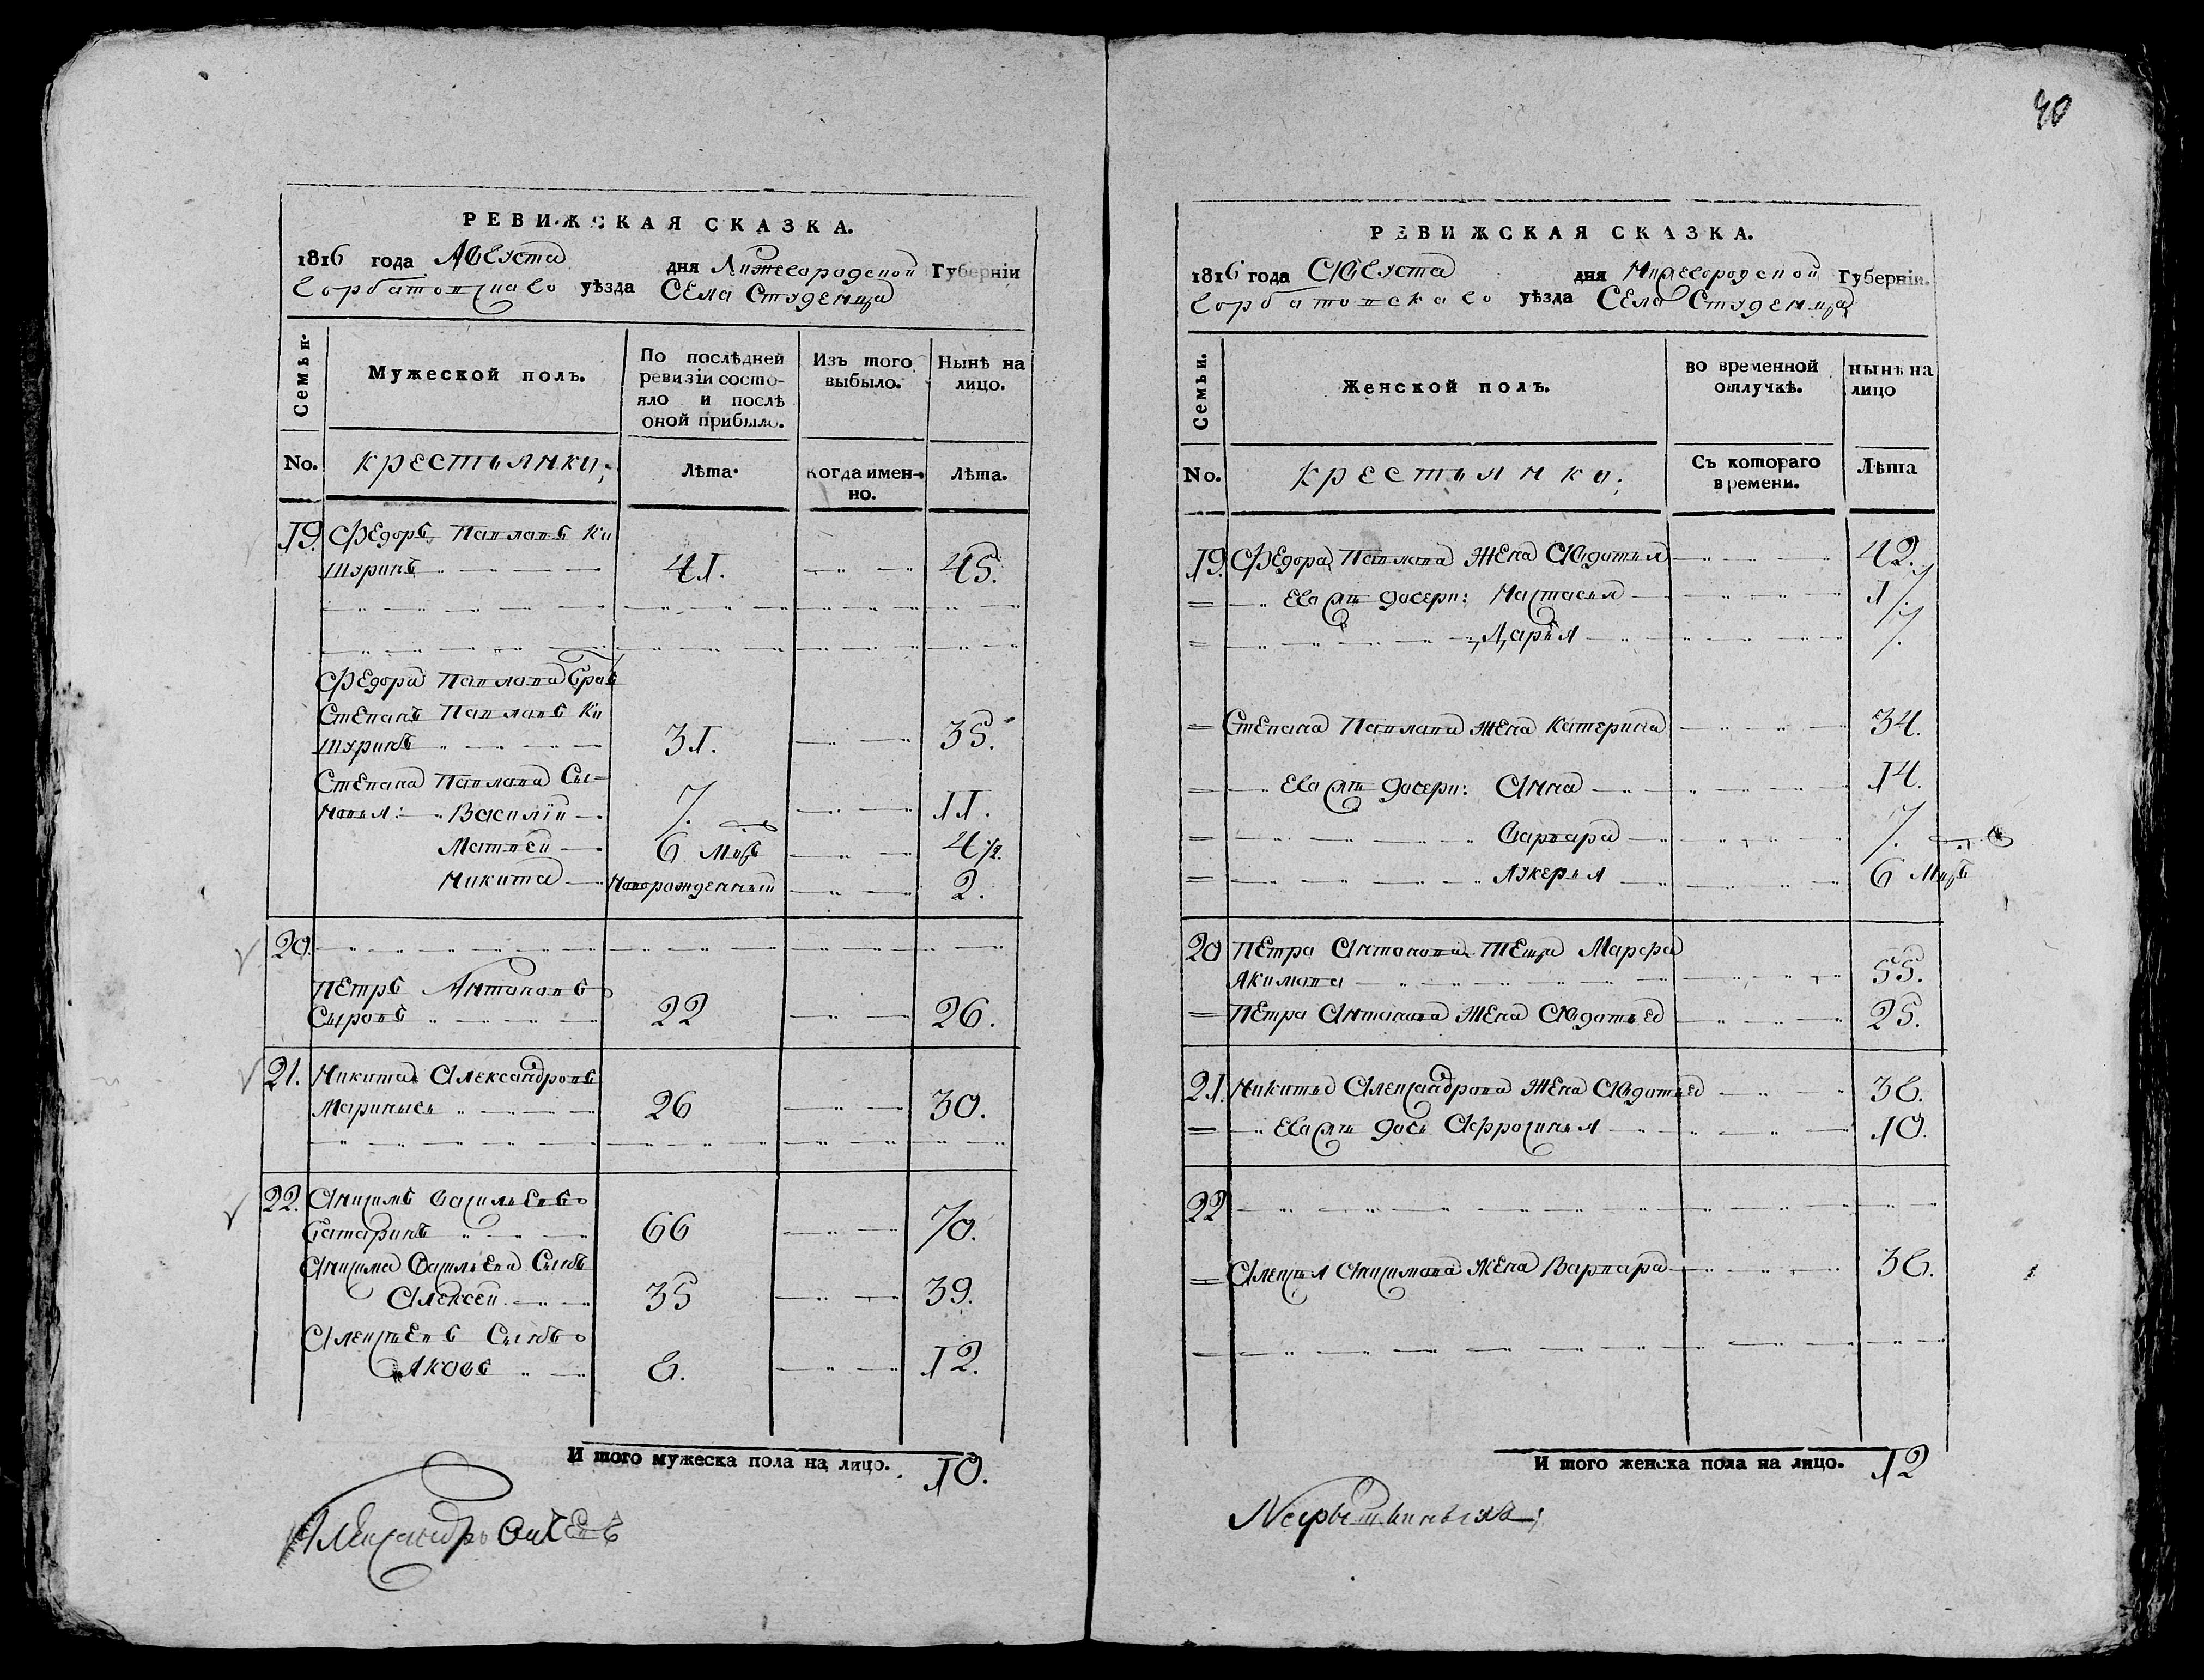 40
РЕВИЖСКАЯ СКАЗКА.
1816 года Августа дня Нижегородской Губерніи
Горбатовскаго уѣзда Села Студенца
Семьи.
Мужеской полъ.
По послѣдней ревизіи состо-
яло и послѣ
оной прибыло.
Изъ того выбыло.
Нынѣ на лицо.
No.
крестьянки;
Лѣта.
когда имен-
но.
Лѣта.
19. Федоръ Павловъ Ки
шуринъ 41. 45.
Федора Павлова братъ
Степанъ Павловъ Ки
шуринъ 31. 35.
Степана Павлова Сы-
новья: Василій 7. 11.
Матвей 6 мѣсъ 4 1/2.
Никита Новорожденный 2.
20.
Петръ Антоновъ
Сыровъ 22 26.
21. Никита Александровъ
Маринысь 26 30.
22. Анисимъ Васильевъ
Батаринъ 66 70.
Анисима Васильева Сынъ
Алексей 35 39.
Алексѣевъ Сынъ
Яковъ 8. 12.
И того мужеска пола на лицо. 10.
Александръ
РЕВИЖСКАЯ СКАЗКА.
1816 года Августа дня Нижегородской Губерніи.
Горбатовскаго уѣзда Села Студенца
Семьи.
Женской полъ.
во временной отлучкѣ.
нынѣ на лицо
No.
крестьянки;
Съ котораго времени.
Лѣта
19. Федора Павлова жена Авдотья 42.
Ево жъ дочери: Настасья 17.
Дарья 7.
Степана Павлова жена Катерина 34.
Ево жъ дочери: Анна 14.
Варвара 7.
Лукерья 6 мѣсъ
20 Петра Антонова теща Марфа
Якимова 55.
Петра Антонова жена Авдотья 25.
21. Никиты Александрова жена Авдотья 38.
Ево жъ дочь Афросинья 10.
22
Алексѣя Анисимова жена Варвара 38.
И того женска пола на лицо. 12